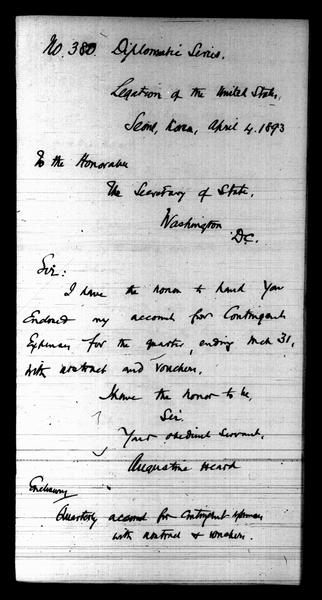 No. 380. Diplomatic Series.
Legation of the United States,
Seoul, Korea, April 4. 1893
To the Honorable
The Secretary of State,
Washington
D.C.
Sir:
I have the honor to hand you
Enclosed my account for Contingent
Expenses for the quarter, ending Mch 31,
with abstract and vouchers.
I have the honor to be,
Sir.
Your obedient servant.
Augustine Heard
Enclosure
Quarterly account for Contingent expenses
with abstract & vouchers.